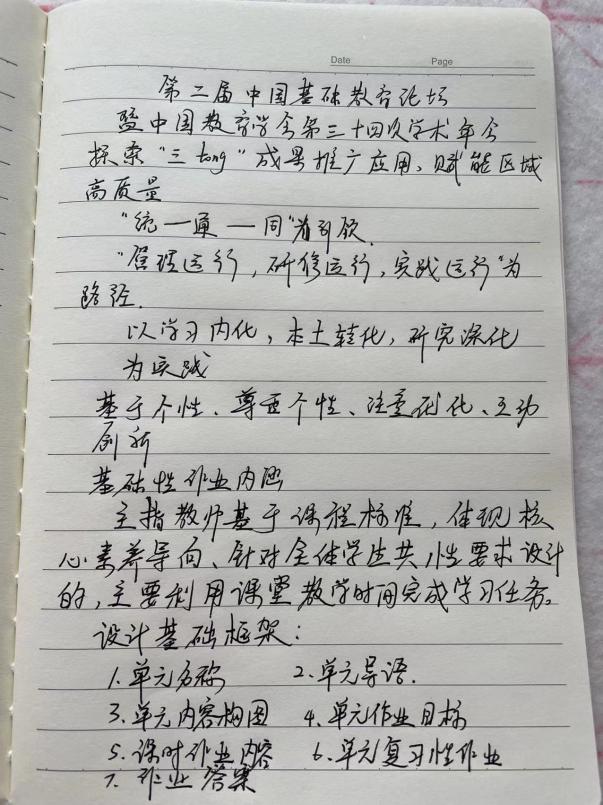 Date Page
第二届中国基础教育论坛
暨中国教育学会第三十四次学术年会
探索“三tong”成果推广应用、赋能区域
高质量
“统一通一同”为引领.
“管理运行，研修运行，实践运行”为
路径.
以学习内化，本土转化，研究深化
为实践
基于个性、尊重个性、注重 化、互动
创新
基础性作业内涵
主指教师基于课程标准，体现核
心素养导向、针对全体学生共性要求设计
的，主要利用课堂教学时间完成学习任务。
设计基础框架：
1.单元名称 2.单元导语.
3.单元内容构图 4.单元作业目标
5.课时作业内容 6.单元复习性作业
7.作业答案